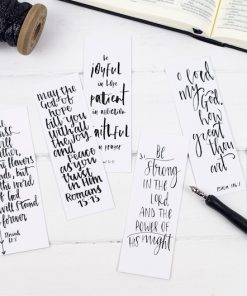 will
the flowers
but
the word
God
will stand
forever
Isaiah
may the
God of
hope
fill you
with all
the joy
and
peace
as you
trust
in Him
Romans
15:13
be
joyful
in hope
patient
in affliction
faithful
in prayer
Be
strong
in the
Lord
and the
power of
His might
O Lord
my
God,
how
great
thou
art
Psalm 104:1